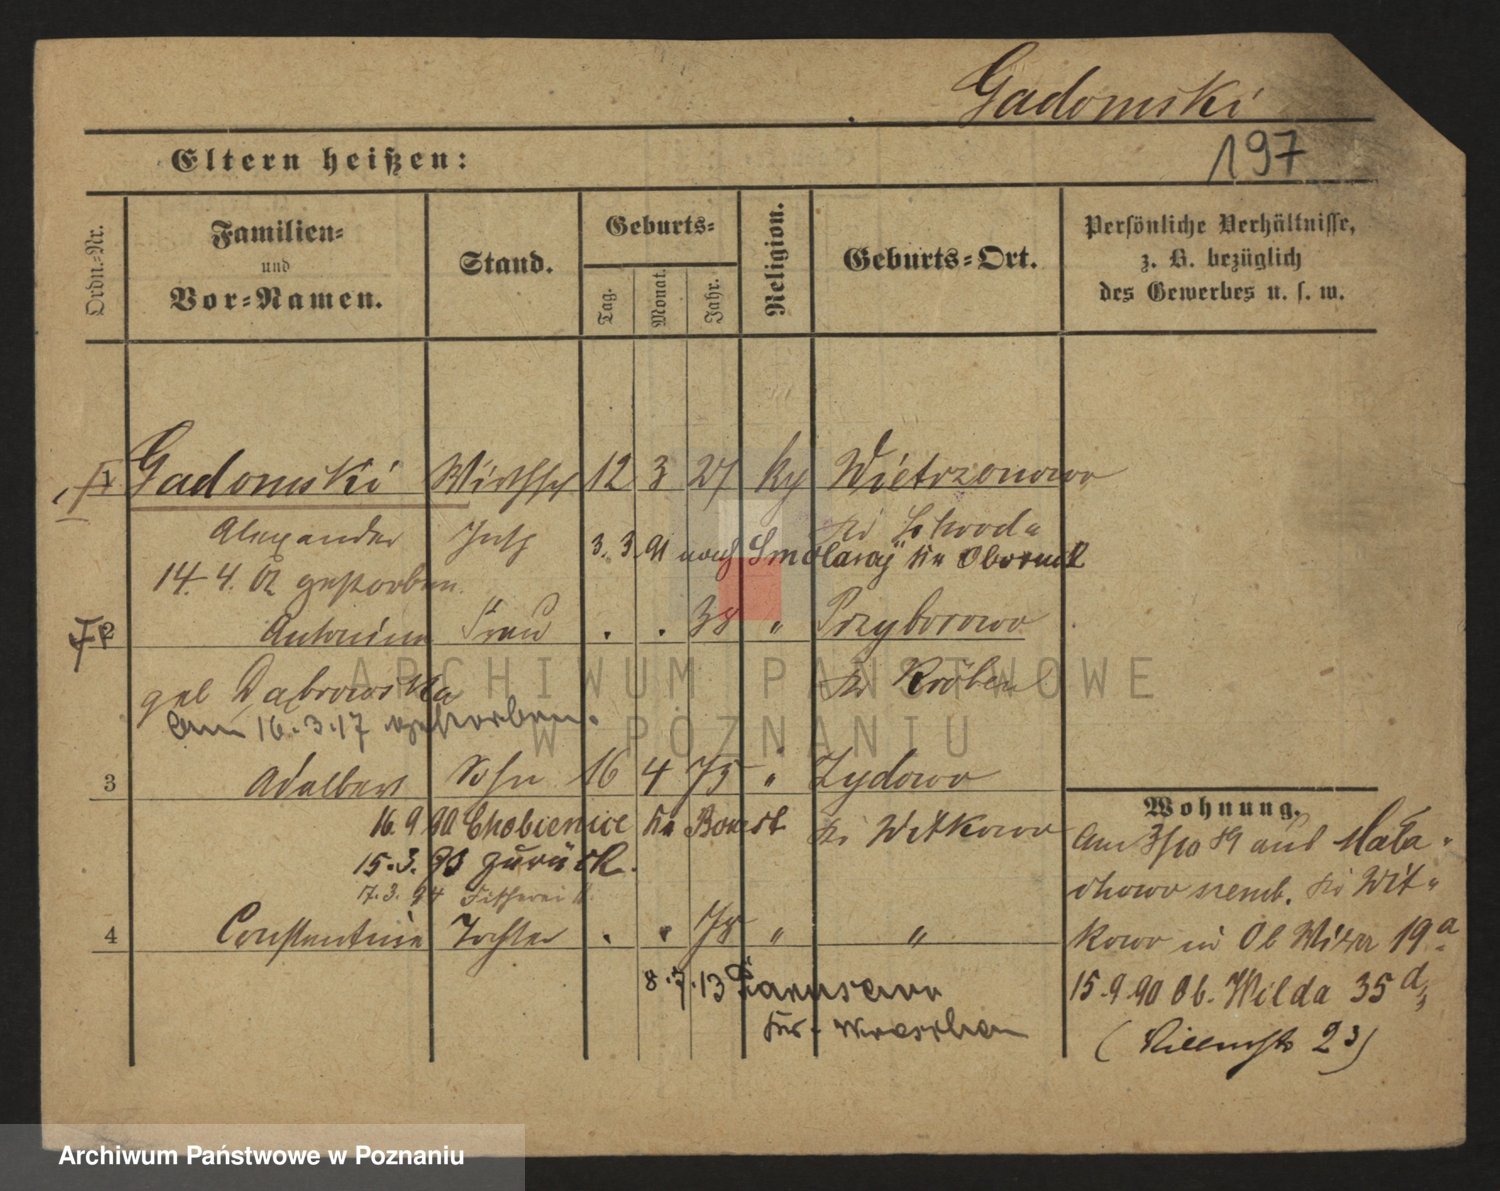 Gadomski
197
Eltern heißen:
Ordn.-Nr.
Familien-
und
Vor-Namen.
Stand.
Geburts-
Tag.
Monat.
Jahr.
Religion.
Geburts-Ort.
Persönliche Verhältnisse,
z. B. bezüglich
des Gewerbes u. s. w.
1 Gadomski 12 3 27 Wietrzonowo
Alexander 3. 3. 91 nach Kr Obornik
14. 4. 02 gestorben.
2 Antonina Frau . . 38 " Przyborowo
geb Dąbrowska Kr Kröben
am 16.3.17 gestorben.
3 Adalbert Sohn 16 4 75 " Zydowo
16.9.90 Chobienice Kr Bomst Kr Witkowo
15.3.93 zurück.
17.3.94
4 Constantine Tochter . . 78 " "
8.7.13
Kr. Wreschen
Wohnung.
am 3/10 89 aus Mała-
chowo szemb. Kr Wit-
kowo in Ob Wilda 19a
15.9.90 Ob. Wilda 35d
( 23)
ARCHIWUM PAŃSTWOWE
W POZNANIU
Archiwum Państwowe w Poznaniu